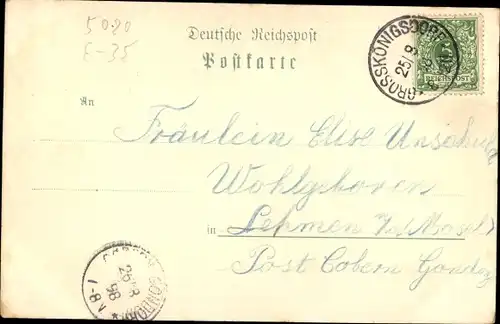 5080
E-35
Deutsche Reichspost
Postkarte
GROSSKÖNIGSDORF
25/8
98
REICHSPOST
An
Fräulein Elise
Wohlgeboren
in Lehmen a/d Mosel
Post Cobern Gondorf
26 8
98
7-8 V